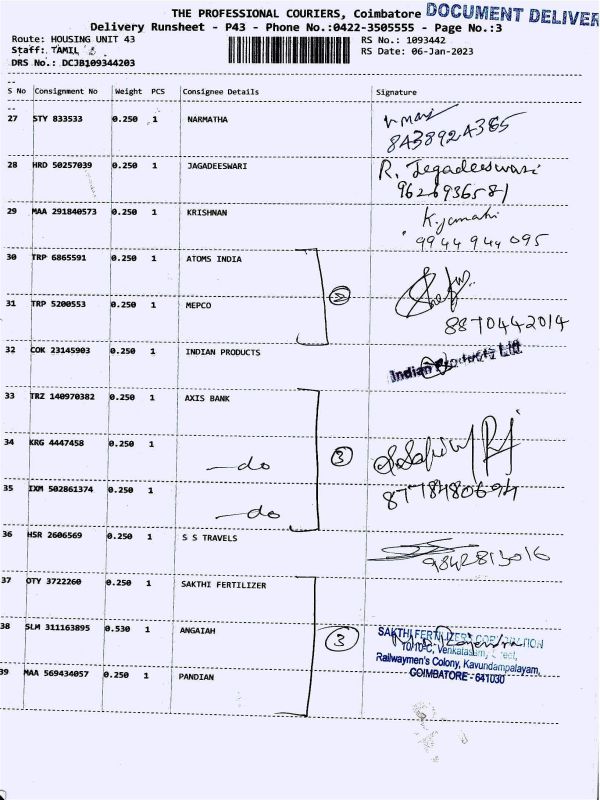 THE PROFESSIONAL COURIERS, Coimbatore DOCUMENT DELIVER
Delivery Runsheet - P43 - Phone No.:0422-3505555 - Page No.:3
Route: HOUSING UNIT 43 RS No.: 1093442
Staff: TAMIL RS Date: 06-Jan-2023
DRS No.: DCJB109344203
S No Consignment No Weight PCS Consignee Details Signature
27 STY 833533 0.250 1 NARMATHA
8438924365
28 HRD 50257039 0.250 1 JAGADEESWARI R. Jegadeeswari
9626936581
29 MAA 291840573 0.250 1 KRISHNAN K.yamahi
9944944095
30 TRP 6865591 0.250 1 ATOMS INDIA
31 TRP 5200553 0.250 1 MEPCO
8870442014
32 COK 23145903 0.250 1 INDIAN PRODUCTS Indian Products Ltd
33 TRZ 140970382 0.250 1 AXIS BANK
34 KRG 4447458 0.250 1 -do 3
35 IXM 502861374 0.250 1 -do
8778480694
36 HSR 2606569 0.250 1 S S TRAVELS 9842813016
37 OTY 3722260 0.250 1 SAKTHI FERTILIZER
38 SLM 311163895 0.530 1 ANGAIAH 3 SAKTHI FERTILIZERS CORPORATION
10/10-C, Venkatasam, Street,
Railwaymen's Colony, Kavundampalayam,
39 MAA 569434057 0.250 1 PANDIAN COIMBATORE - 641030